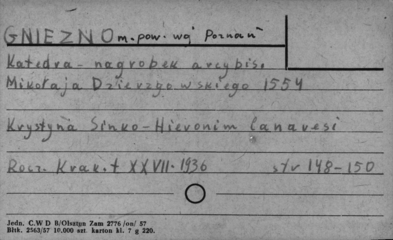 GNIEZNO m. pow. woj Poznań
Katedra - nagrobek arcybis.
Mikołaja Dzierzgowskiego 1554
Krystyna Sinko - Hieronim Canavesi
Rocz. Krak. t XXVII. 1936 str 148-150
Jedn. C.W D B/Olsztyn Zam 2776 /on/ 57
Bisk. 2563/57 10.000 szt karton kl. 7 g 220.